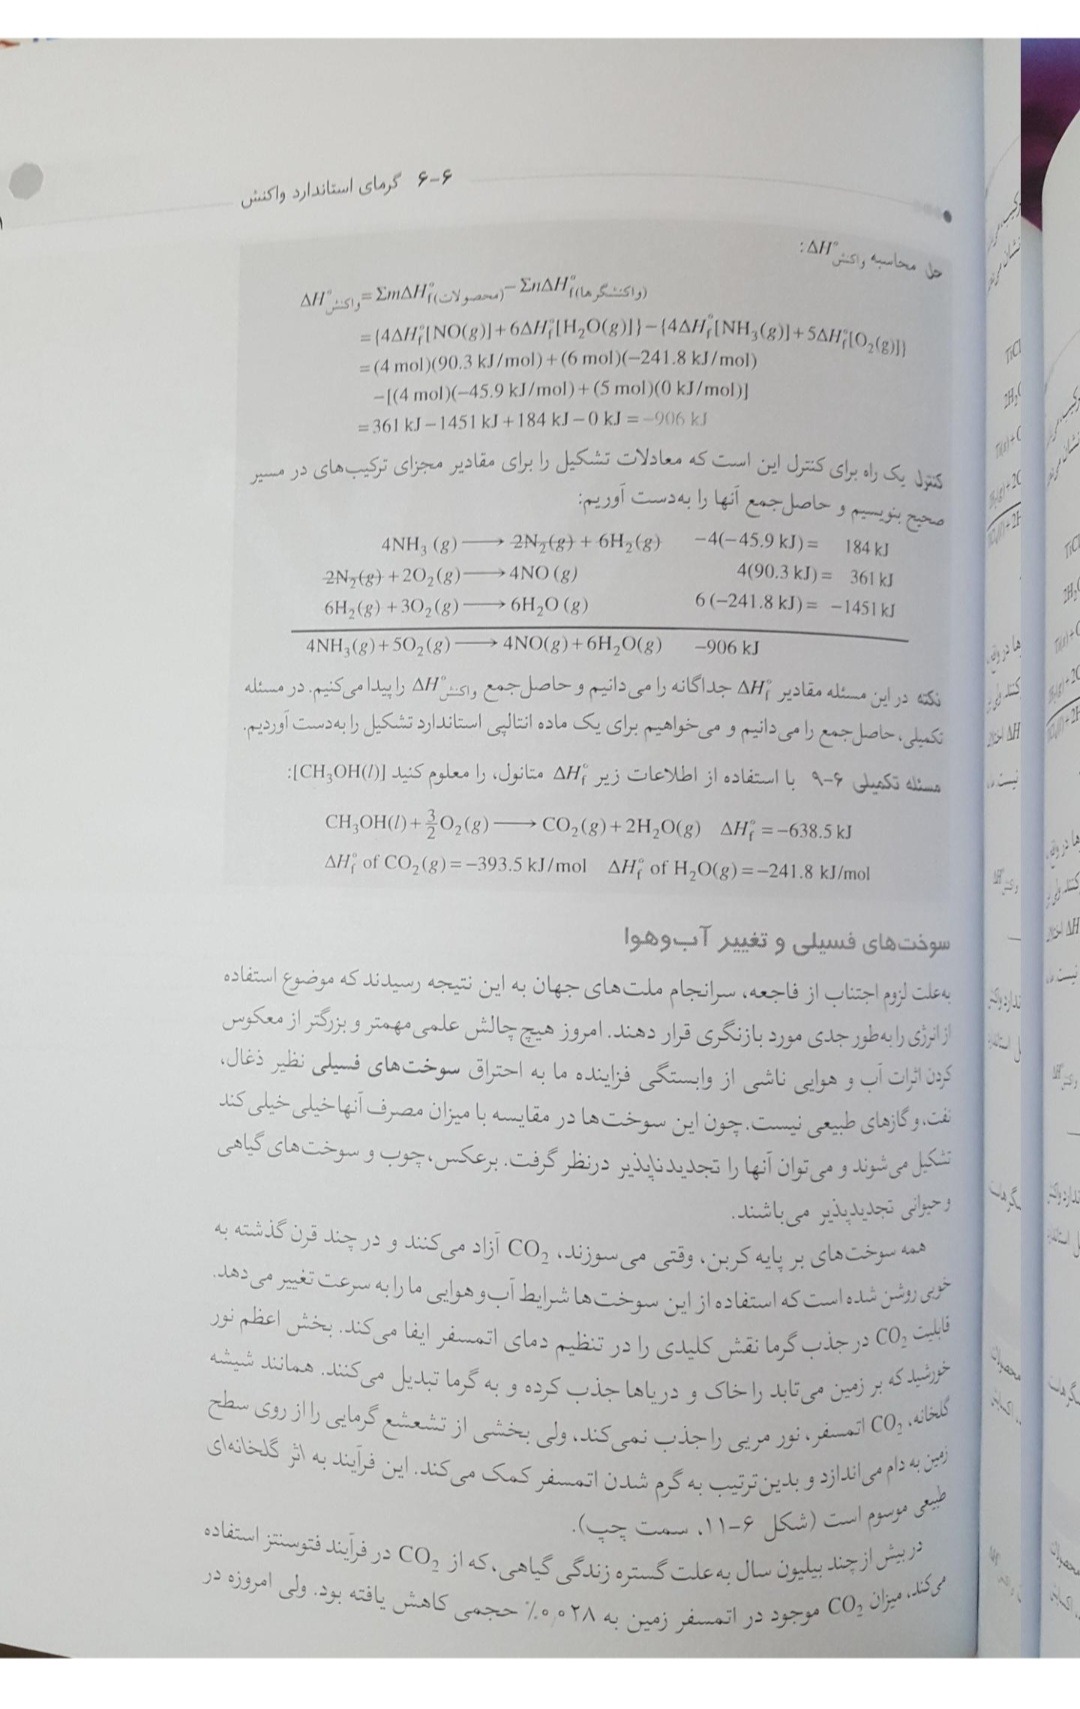 ۶-۶ گرمای استاندارد واکنش
حل محاسبه ΔH°واکنش:
ΔH°واکنش = ΣmΔH°f(محصولات) − ΣnΔH°f(واکنشگرها)
= {4ΔH°f[NO(g)] + 6ΔH°f[H₂O(g)]} − {4ΔH°f[NH₃(g)] + 5ΔH°f[O₂(g)]}
= (4 mol)(90.3 kJ/mol) + (6 mol)(−241.8 kJ/mol)
−[(4 mol)(−45.9 kJ/mol) + (5 mol)(0 kJ/mol)]
= 361 kJ − 1451 kJ + 184 kJ − 0 kJ = −906 kJ
کنترل یک راه برای کنترل این است که معادلات تشکیل را برای مقادیر مجزای ترکیب‌های در مسیر
صحیح بنویسیم و حاصل‌جمع آنها را به‌دست آوریم:
4NH₃ (g) ⟶ 2N₂(g) + 6H₂(g) −4(−45.9 kJ) = 184 kJ
2N₂(g) + 2O₂(g) ⟶ 4NO (g) 4(90.3 kJ) = 361 kJ
6H₂(g) + 3O₂(g) ⟶ 6H₂O (g) 6 (−241.8 kJ) = −1451 kJ
4NH₃(g) + 5O₂(g) ⟶ 4NO(g) + 6H₂O(g) −906 kJ
نکته در این مسئله مقادیر ΔH°f جداگانه را می‌دانیم و حاصل‌جمع ΔH°واکنش را پیدا می‌کنیم. در مسئله
تکمیلی، حاصل‌جمع را می‌دانیم و می‌خواهیم برای یک ماده انتالپی استاندارد تشکیل را به‌دست آوردیم.
مسئله تکمیلی ۶-۹ با استفاده از اطلاعات زیر ΔH°f متانول، را معلوم کنید [CH₃OH(l)]:
CH₃OH(l) + 3/2 O₂(g) ⟶ CO₂(g) + 2H₂O(g) ΔH°f = −638.5 kJ
ΔH°f of CO₂(g) = −393.5 kJ/mol ΔH°f of H₂O(g) = −241.8 kJ/mol
سوخت‌های فسیلی و تغییر آب‌وهوا
به‌علت لزوم اجتناب از فاجعه، سرانجام ملت‌های جهان به این نتیجه رسیدند که موضوع استفاده
از انرژی را به‌طور جدی مورد بازنگری قرار دهند. امروز هیچ چالش علمی مهمتر و بزرگتر از معکوس
کردن اثرات آب و هوایی ناشی از وابستگی فزاینده ما به احتراق سوخت‌های فسیلی نظیر ذغال،
نفت، و گازهای طبیعی نیست. چون این سوخت‌ها در مقایسه با میزان مصرف آنها خیلی خیلی کند
تشکیل می‌شوند و می‌توان آنها را تجدیدناپذیر درنظر گرفت. برعکس، چوب و سوخت‌های گیاهی
و حیوانی تجدیدپذیر می‌باشند.
همه سوخت‌های بر پایه کربن، وقتی می‌سوزند، CO₂ آزاد می‌کنند و در چند قرن گذشته به
خوبی روشن شده است که استفاده از این سوخت‌ها شرایط آب‌و هوایی ما را به سرعت تغییر می‌دهد.
قابلیت CO₂ در جذب گرما نقش کلیدی را در تنظیم دمای اتمسفر ایفا می‌کند. بخش اعظم نور
خورشید که بر زمین می‌تابد را خاک و دریاها جذب کرده و به گرما تبدیل می‌کنند. همانند شیشه
گلخانه، CO₂ اتمسفر، نور مریی را جذب نمی‌کند، ولی بخشی از تشعشع گرمایی را از روی سطح
زمین به دام می‌اندازد و بدین‌ترتیب به گرم شدن اتمسفر کمک می‌کند. این فرآیند به اثر گلخانه‌ای
طبیعی موسوم است (شکل ۶-۱۱، سمت چپ).
در بیش از چند بیلیون سال به‌علت گستره زندگی گیاهی، که از CO₂ در فرآیند فتوسنتز استفاده
می‌کند، میزان CO₂ موجود در اتمسفر زمین به ۰٫۰۲۸٪ حجمی کاهش یافته بود. ولی امروزه در